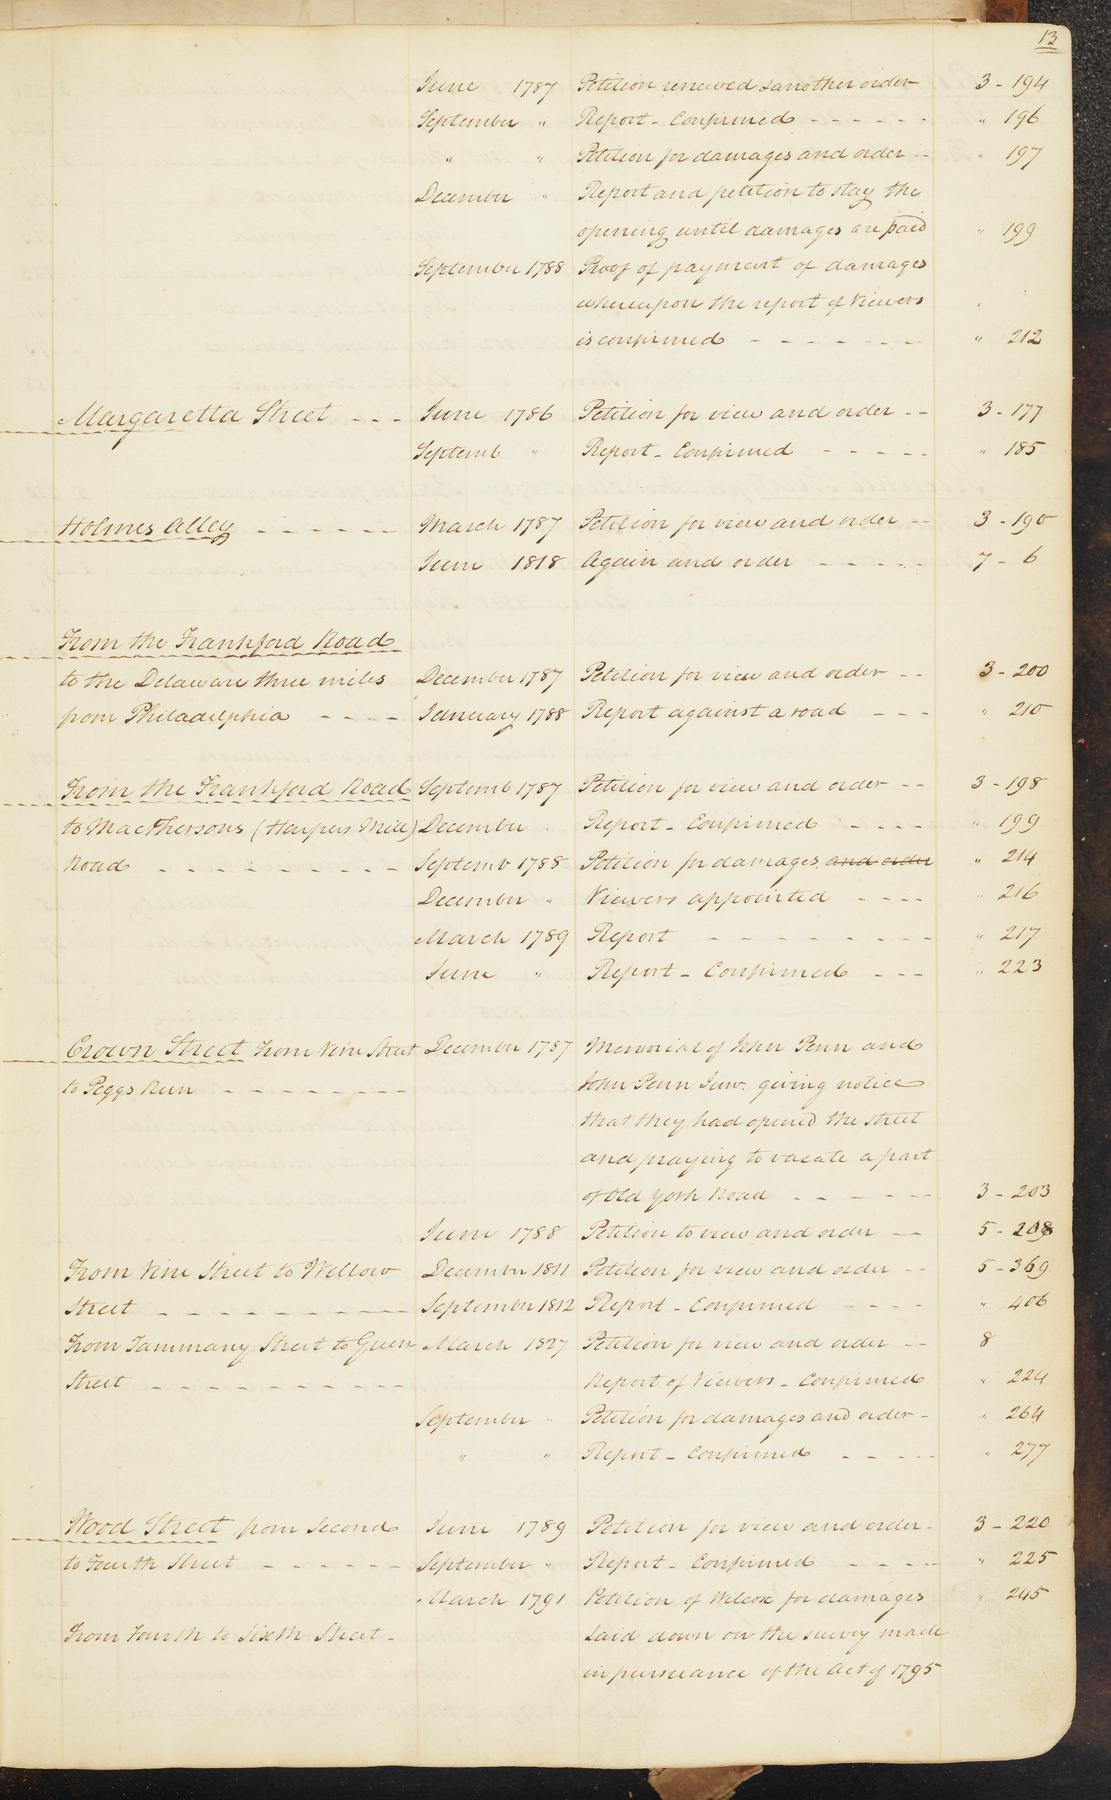 13
June 1787 Petition renewed & another order 3 - 194
September " Report - Confirmed - - - - - - " 196
" " Petition for damages and order - - " 197
December " Report and petition to stay the
opening until damages are paid " 199
September 1788 Proof of payment of damages
whereupon the report of Viewers
is confirmed - - - - - - - " 212
Margaretta Street - - - June 1786 Petition for view and order - - 3 - 177
Septemb " Report - Confirmed - - - - - " 185
Holmes Alley - - - - - - March 1787 Petition for view and order - - 3 - 190
June 1818 Again and order - - - - - 7 - 6
From the Frankford Road
to the Delaware three miles December 1787 Petition for view and order - - 3 - 200
from Philadelphia - - - - January 1788 Report against a road - - - " 210
From the Frankford Road Septemb 1787 Petition for view and order - - 3 - 198
to MacPhersons (Harpers Mill) December " Report - Confirmed - - - - " 199
Road - - - - - - - - - - Septemb 1788 Petition for damages and order " 214
December " Viewers appointed - - - - " 216
March 1789 Report - - - - - - - - - " 217
June " Report - Confirmed - - - " 223
Crown Street From Vine Street December 1787 Memorial of John Penn and
to Peggs Run - - - - - - - - John Penn Junr. giving notice
that they had opened the street
and praying to vacate a part
of Old York Road - - - - - - 3 - 203
June 1788 Petition to view and order - - 5 - 208
From Vine Street to Willow December 1811 Petition for view and order - - 5 - 369
Street - - - - - - - - - - - September 1812 Report - Confirmed - - - - " 406
From Tammany Street to Green March 1827 Petition for view and order - - 8
Street - - - - - - - - - - - Report of Viewers - Confirmed " 224
September " Petition for damages and order - " 264
" " Report - Confirmed - - - - - " 277
Wood Street from Second June 1789 Petition for view and order - 3 - 220
to Fourth Street - - - - - - September " Report - Confirmed - - - - - " 225
March 1791 Petition of Wilcox for damages " 245
From Fourth to Sixth Street - Laid down on the survey made
in pursuance of the Act of 1795